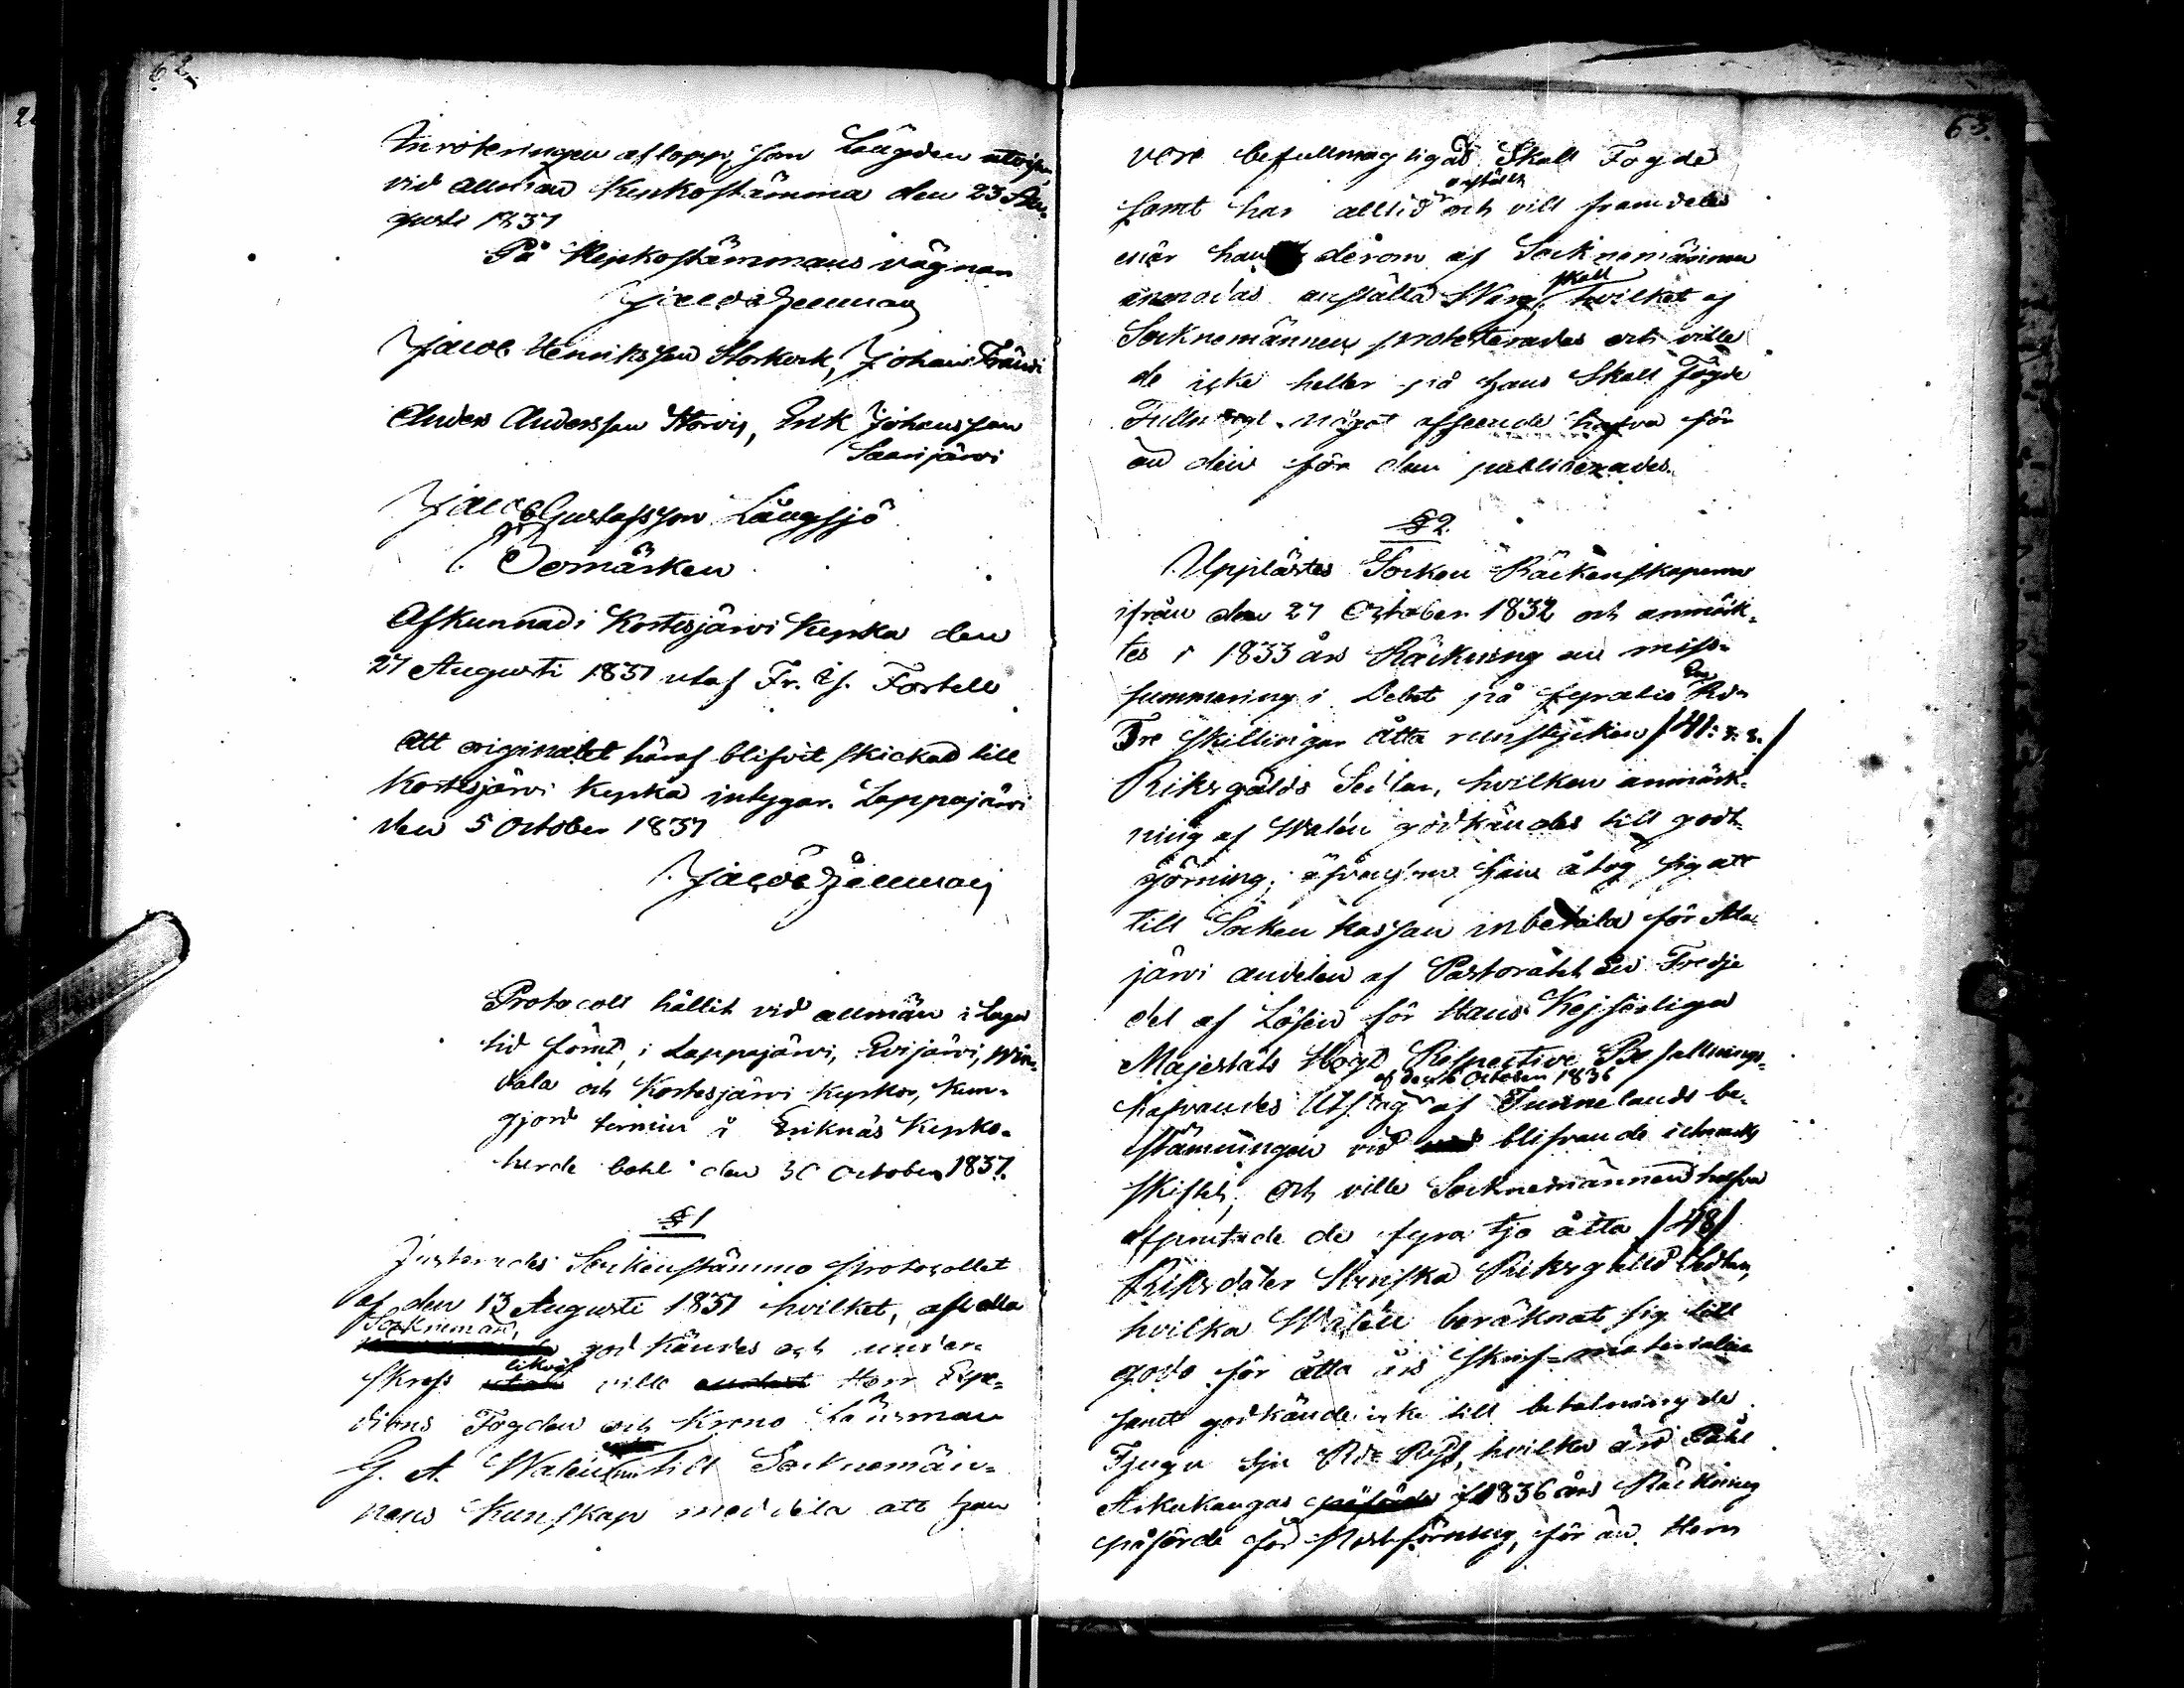 62.
Inroteringen aflopp, som Längden utvisar,
vid allmän Kyrkostämma den 23 Au=
gusti 1837
På Kyrkostämmans vägnar
Jacob Henriksson Storkork, Johan Frändi
Anders Andersson Storvis, Erik Johansson
Saarijärvi
Jacob Gustafsson Långsjö
Bomärken
Afkunnad i Kortesjärvi Kyrka den
27 Augusti 1837 utaf Fr. J. Forsell
Att originalet häraf blifvit skickad till
Kortesjärvi Kyrka intygar. Lappajärvi
den 5 October 1837
Protocoll hållit vid allmän i Laga
tid förut, i Lappajärvi, Evijärvi, Win=
dala och Kortesjärvi Kyrkor, kun=
gjord termin å Eriknäs Kyrko=
herde bohl den 30 October 1837.
§ 1
Justerades Sockenstämmo Protocollet
af den 13 Augusti 1837 hvilket, af alla
Sockneman,
godkändes och under=
likväl
skrefs ville Herr Expe=
ditions Fogden och Krono Länsman
G. A. Walén till Socknemän=
nens Kunskap meddela att han
63.
vore befullmägtigad Skall Fogde
anstält
samt har alltid och vill framdeles
när han derom af Socknemännen
skall
anmodas anställa Warg hvilket af
Socknemännen protesterades och ville
de icke heller på hans Skall Fogde
Fullmagt något afseende hafva för
än den för dem publicerades.
§ 2.
Upplästes Socken Räkenskaperna
ifrån den 27 October 1832 och anmärk=
tes i 1833 års Räkning en miss=
summering i Debet på fyratio
en
Rdr
Tre skillingar åtta runstycken /41: 3: 8./
Riksgälds Sedlar, hvilken anmärk=
ning af Walén godkändes till godt=
görning, äfvensom han åtog sig att
till Socken kassan inbetala för Ala=
järvi andelen af Pastoratet en Tredje
del af Lösen för Hans Kejserliga
Majestäts Högt Respective Befallnings=
af den 6 October 1836
hafvandes Utslag af Tunnelands be=
stämningen vid blifvande
skiftet; och ville Socknemännen hafva
afprutade de fyratjo åtta /48/
Riksdaler Svenska Riksgälds Sedlar,
hvilka Walén beräknat sig till
godo för åtta års skrif=materialier
samt godkände icke till betalning de
Tjugu sju Rdr Rgs, hvilka
Askukangas i 1836 års Räkning
påförde för Postförning, för än Herr